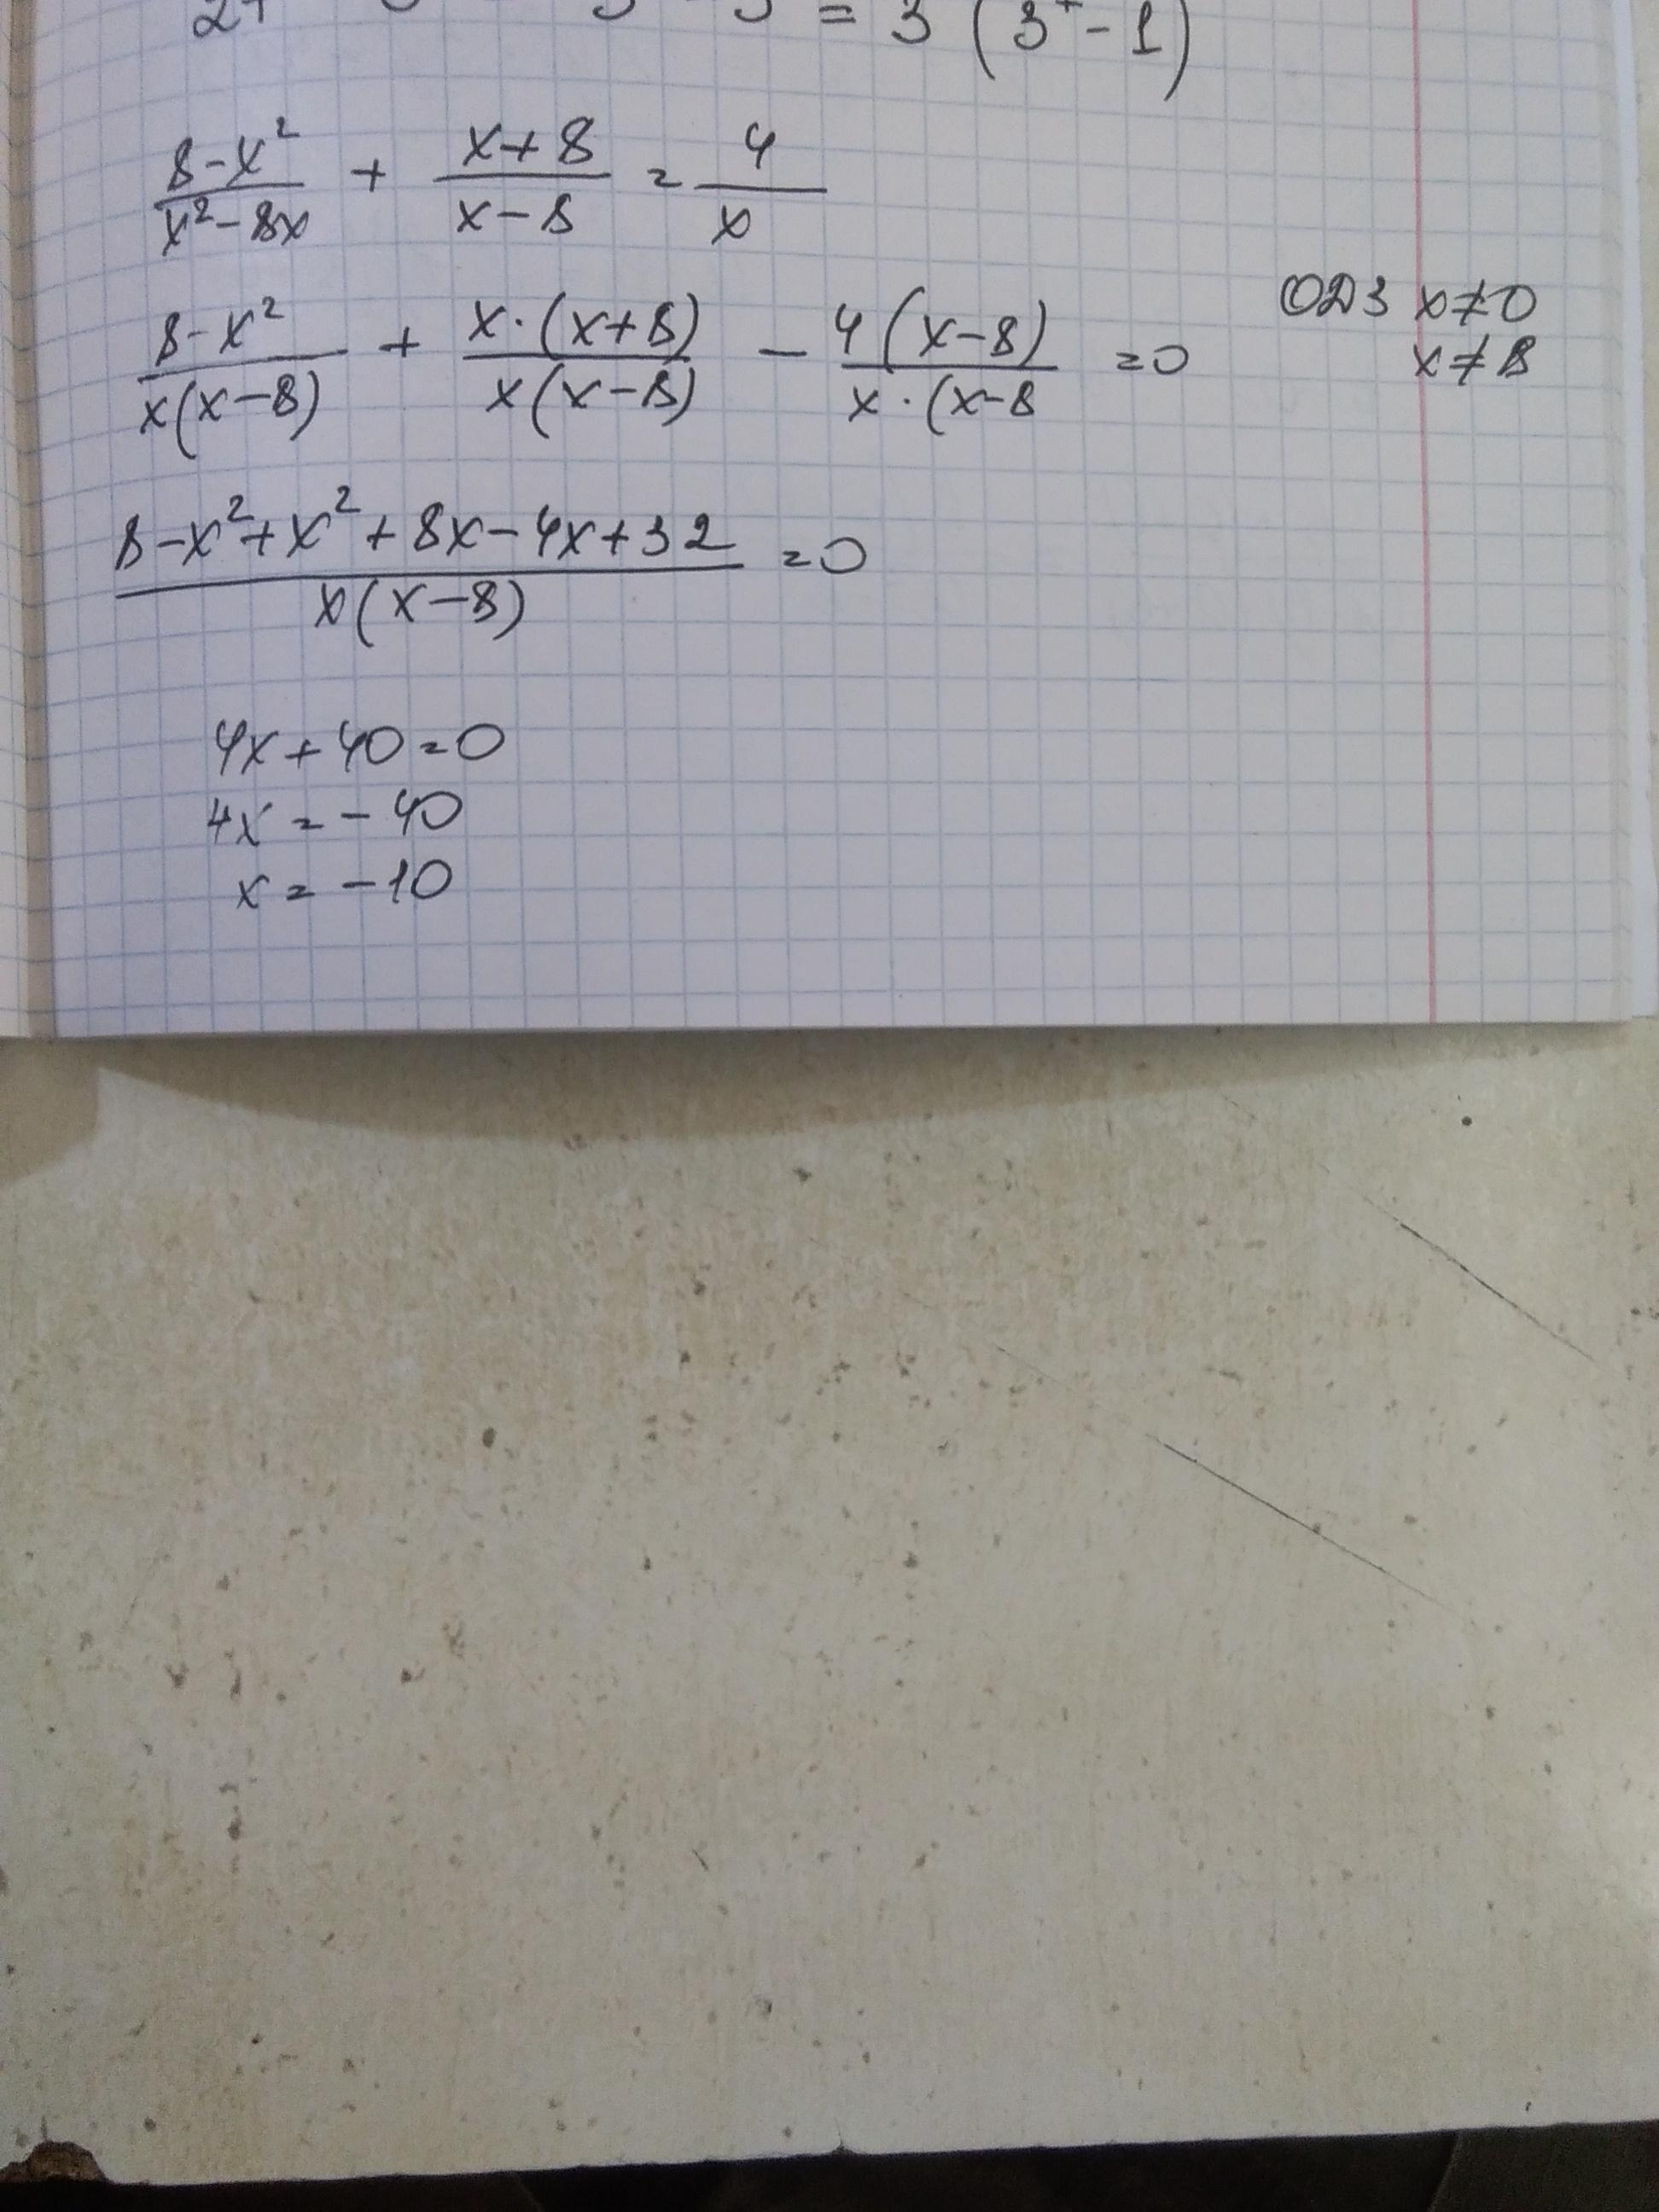 = 3 (3⁺ - 1)
(8-x²)/(x²-8x) + (x+8)/(x-8) = 4/x
(8-x²)/(x(x-8)) + (x·(x+8))/(x(x-8)) - (4(x-8))/(x·(x-8) = 0 ОДЗ x≠0
x≠8
(8-x²+x²+8x-4x+32)/(x(x-8)) = 0
4x+40=0
4x=-40
x=-10